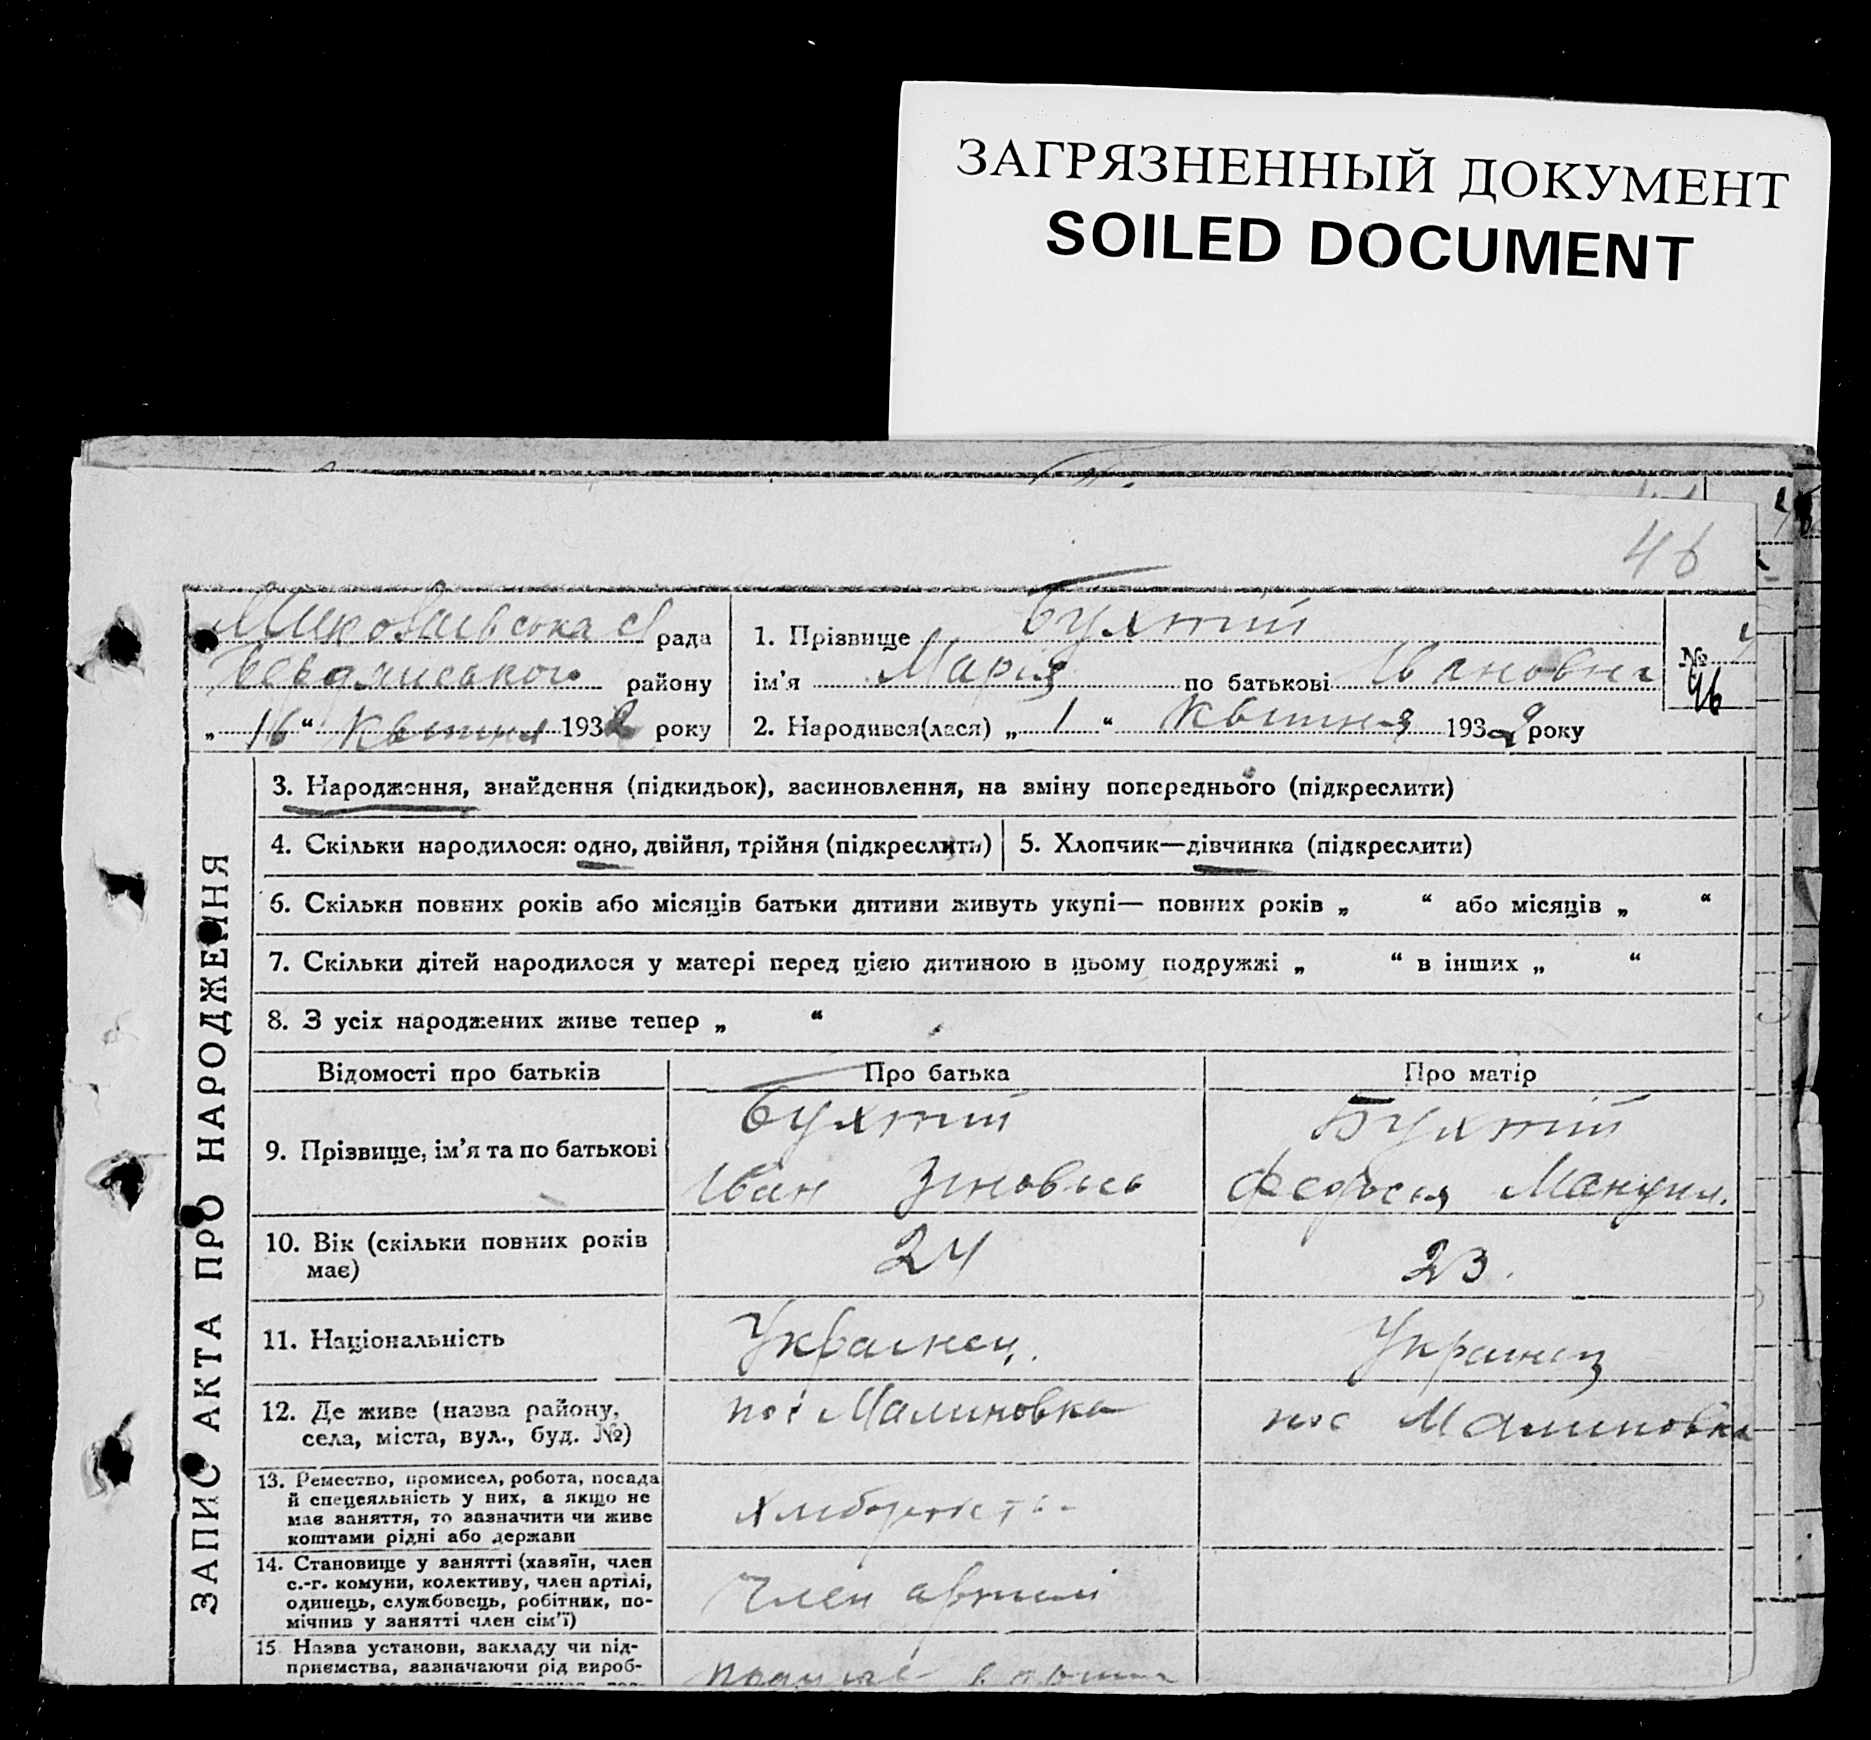 ЗАГРЯЗНЕННЫЙ ДОКУМЕНТ
SOILED DOCUMENT
46
Миколаївська с/ рада
району
„ 16 “ Квітня 1932 року
1. Прізвище Бухтій
ім’я Марія по батькові Івановна
2. Народився(лася) „ 1 “ Квітня 1932 року
№
46
ЗАПИС АКТА ПРО НАРОДЖЕННЯ
3. Народження, знайдення (підкидьок), засиновлення, на зміну попереднього (підкреслити)
4. Скільки народилося: одно, двійня, трійня (підкреслити)
5. Хлопчик—дівчинка (підкреслити)
6. Скільки повних років або місяців батьки дитини живуть укупі— повних років „ “ або місяців „ “
7. Скільки дітей народилося у матері перед цією дитиною в цьому подружжі „ “ в інших „ “
8. З усіх народжених живе тепер „ “
Відомості про батьків
Про батька
Про матір
9. Прізвище, ім’я та по батькові
Бухтій
Іван Зіновьєв
Бухтій
Федосія Мануил.
10. Вік (скільки повних років
має)
24
23.
11. Національність
Украінец.
Украінец
12. Де живе (назва району,
села, міста, вул., буд. №)
пос Малиновка
пос Малиновка
13. Ремество, промисел, робота, посада
й спецеяльність у них, а якщо не
має заняття, то зазначити чи живе
коштами рідні або держави
14. Становище у занятті (хазяїн, член
с.-г. комуни, колективу, член артілі,
одинець, службовець, робітник, по-
мічнив у занятті член сім’ї)
Член артілі
15. Назва установи, закладу чи під-
приємства, зазначаючи рід вироб-